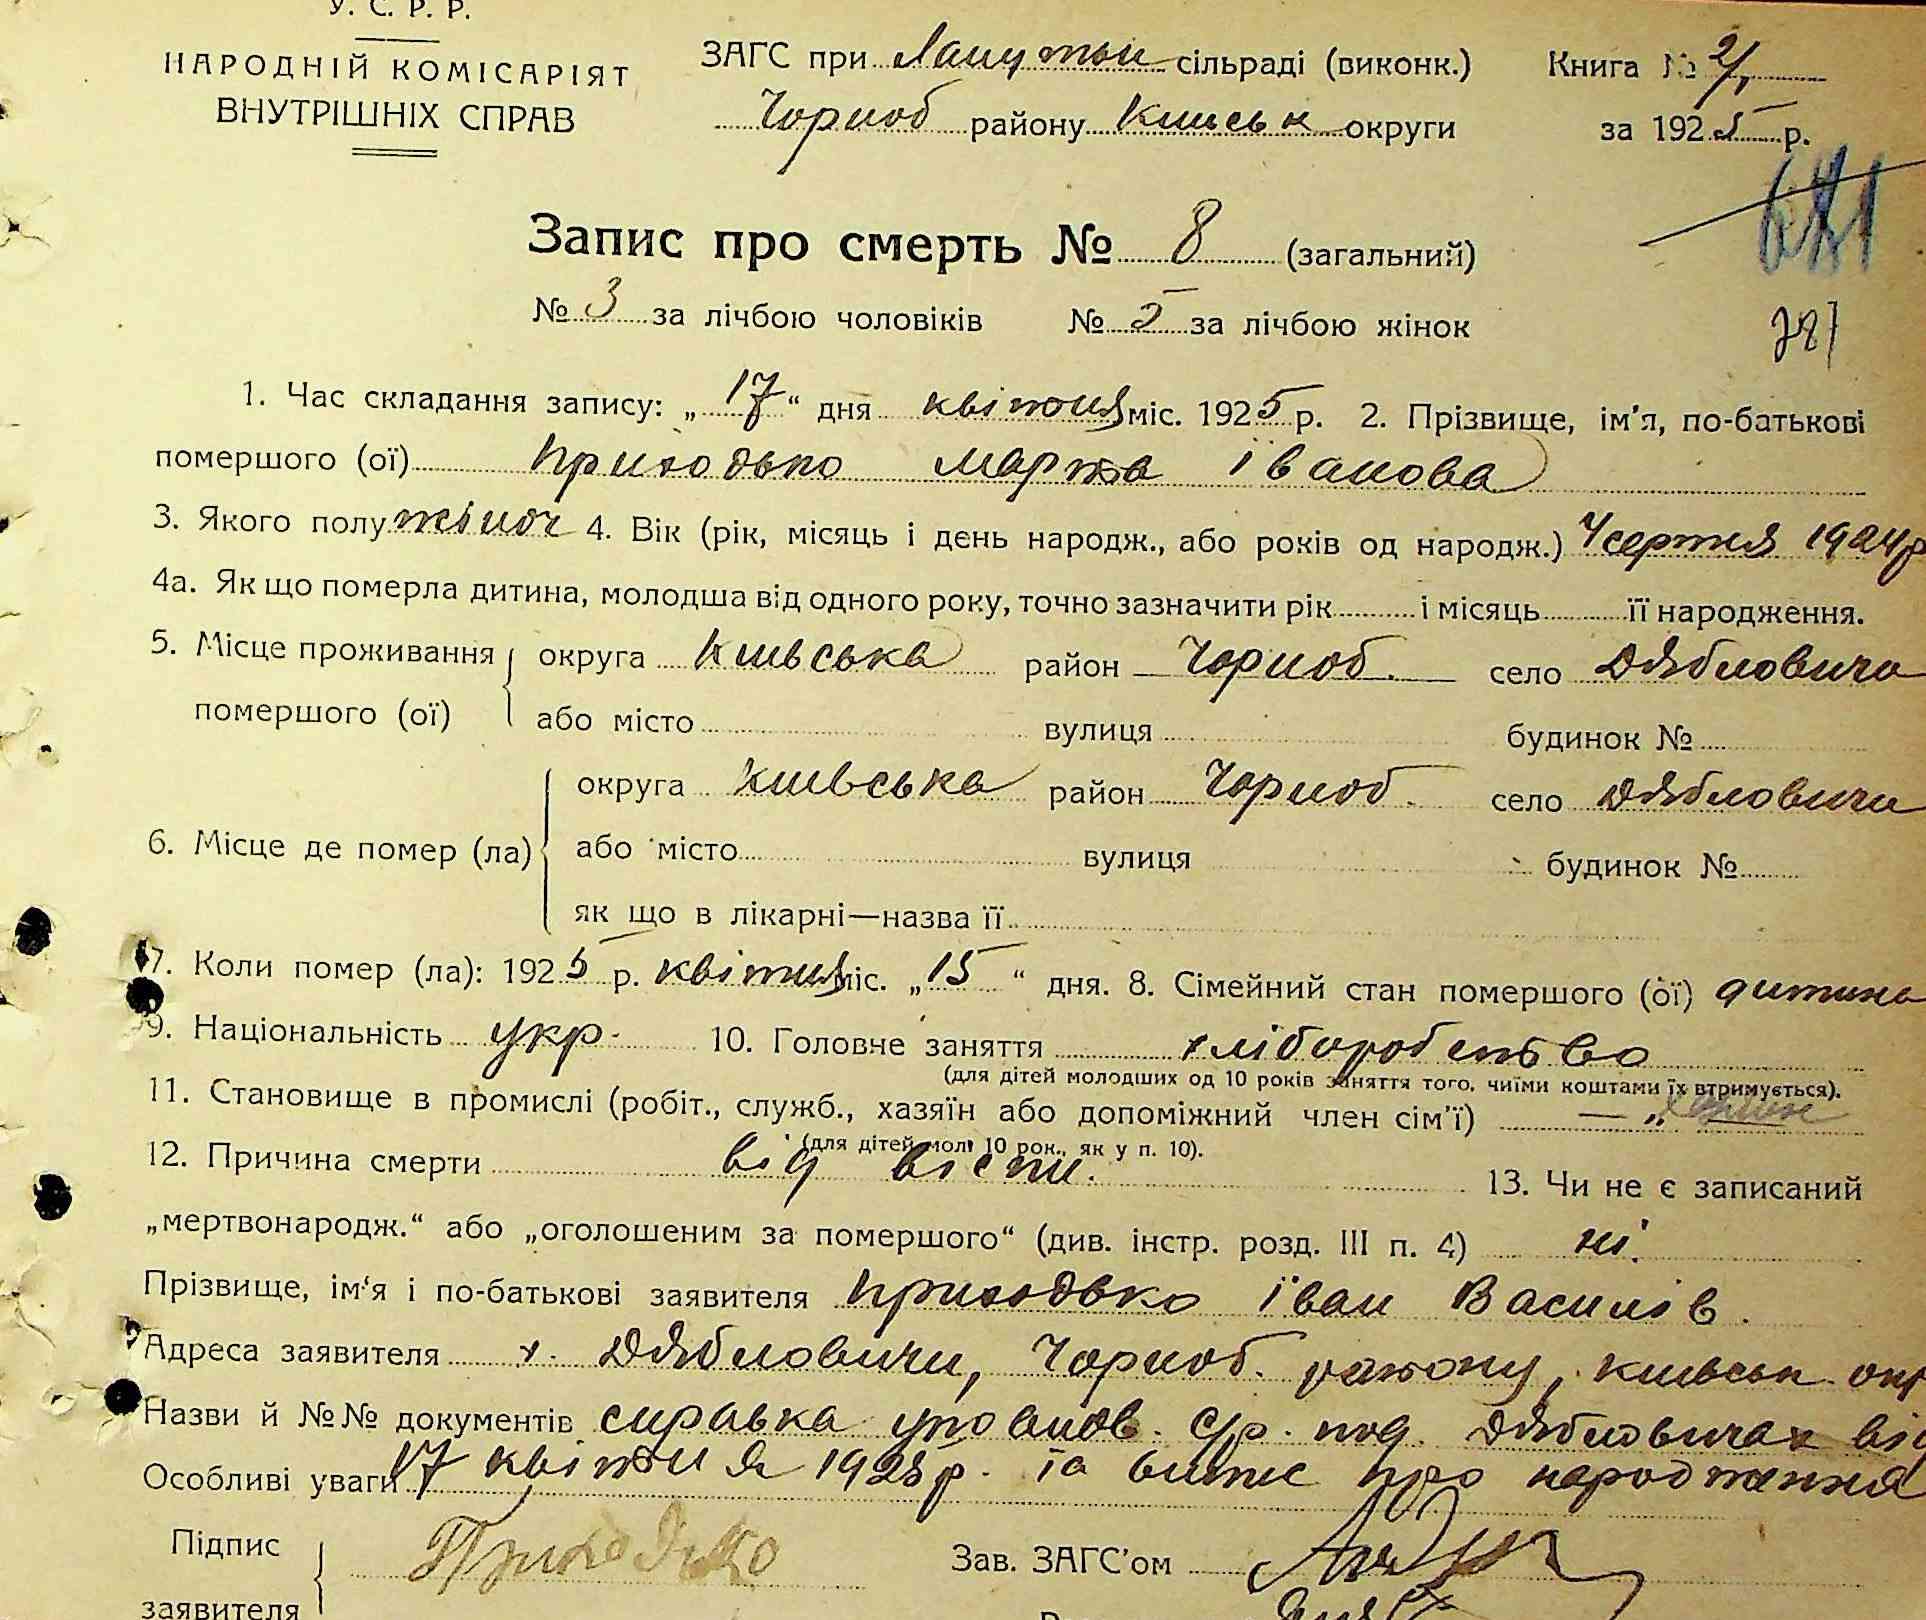 У. С. Р. Р.
НАРОДНІЙ КОМІСАРІЯТ
ВНУТРІШНІХ СПРАВ
ЗАГС при сільраді (виконк.)
Чорноб району Київськ округи
Книга № 2/1
за 1925 р.
681
Запис про смерть № 8 (загальний)
№ 3 за лічбою чоловіків № 5 за лічбою жінок
1. Час складання запису: „17“ дня квітня міс. 1925 р. 2. Прізвище, ім'я, по-батькові
помершого (ої) Приходько Марта Іванова
3. Якого полу жіноч 4. Вік (рік, місяць і день народж., або років од народж.) 4 серпня 1924 р
4а. Як що померла дитина, молодша від одного року, точно зазначити рік і місяць її народження.
5. Місце проживання округа Київська район Чорноб. село Дябловичи
помершого (ої) або місто вулиця будинок №
округа Київська район Чорноб. село Дябловичи
6. Місце де помер (ла) або місто вулиця будинок №
як що в лікарні—назва її
7. Коли помер (ла): 1925 р. квітня міс. „15“ дня. 8. Сімейний стан помершого (ої) дитина
9. Національність укр. 10. Головне заняття хліборобство
(для дітей молодших од 10 років заняття того, чиїми коштами їх втримується).
11. Становище в промислі (робіт., служб., хазяїн або допоміжний член сім'ї) — „
(для дітей мол. 10 рок., як у п. 10).
12. Причина смерти від віспи. 13. Чи не є записаний
„мертвонародж.“ або „оголошеним за помершого“ (див. інстр. розд. III п. 4) ні.
Прізвище, ім'я і по-батькові заявителя Приходько Іван Василів.
Адреса заявителя х. Дябловичи, Чорноб. району, Київськ. окр
Назви й №№ документів справка уповнов. с/р. по Дябловичах від
Особливі уваги 17 квітня 1925 р. та витяг про народження
Підпис
заявителя
Приходько
Зав. ЗАГС'ом